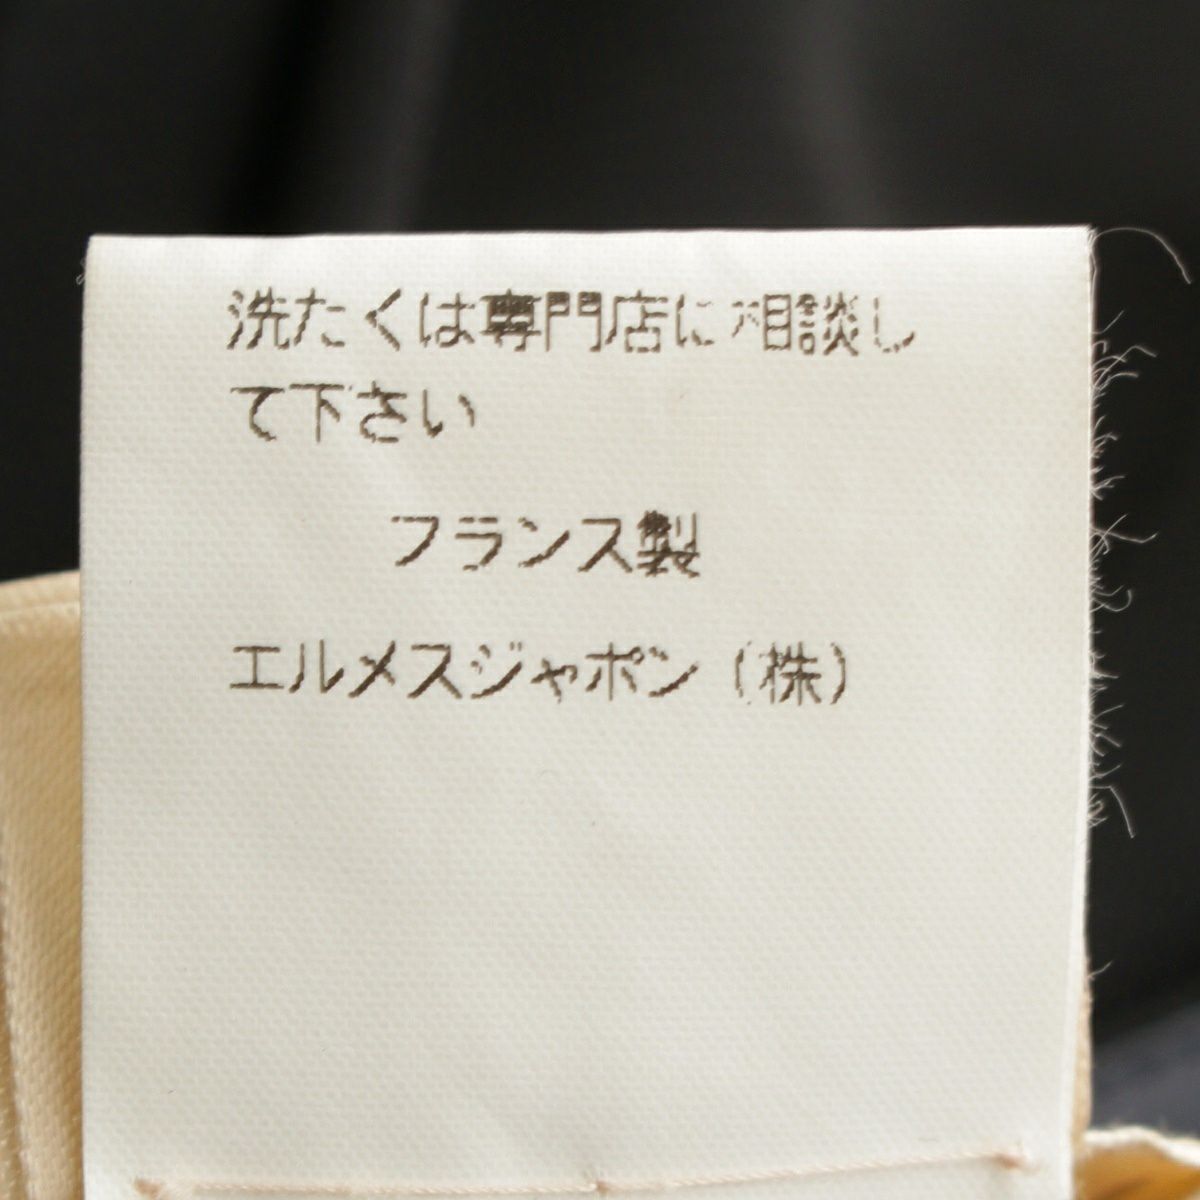 洗たくは専門店に相談し
て下さい
フランス製
エルメスジャポン（株）